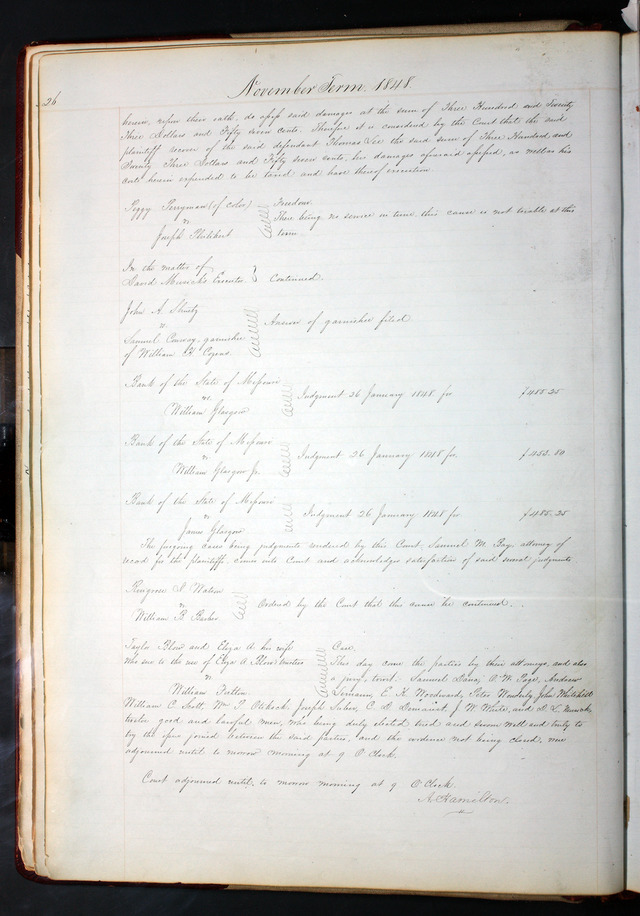 26
November Term 1848.
herein, upon their oath, do assess said damages at the sum of Three Hundred and Twenty
Three Dollars and Fifty seven cents. Therefore it is considered by the Court that the said
plaintiff recover of the said defendant Thomas Lee the said sum of Three Hundred and
Twenty Three Dollars and Fifty seven cents, his damages aforesaid assessed, as well as his
costs herein expended to be taxed and have thereof execution.
Peggy Perryman (of color) Freedom.
vs There being no service in time this cause is not triable at this
Joseph Philibert term.
In the matter of
David Musick's Executor Continued.
John A. Shultz
vs. Answer of garnishee filed
Samuel Conway, garnishee
of William H.
Bank of the State of Missouri
vs. Judgment 26 January 1848 for $485.25
William Glasgow
Bank of the State of Missouri
vs Judgment 26 January 1848 for $452.80
William Glasgow Jr.
Bank of the State of Missouri
vs Judgment 26 January 1848 for $485.25
James Glasgow
The foregoing cases being judgments rendered by this Court, Samuel M. Bay, attorney of
record for the plaintiffs, comes into Court and acknowledges satisfaction of said several judgments.
Ringrose D. Watson
vs Ordered by the Court that this cause be continued.
William B. Barber
Taylor Blow and Eliza A. his wife Case.
who sue to the use of Eliza A. Blow trustees This day come the parties by their attorneys, and also
vs a jury, towit: Samuel A. W. Page, Andrew
William Fratten. E. K. Woodward, Peter John Whitehill
William C. Scott, Wm P. Joseph Tabor, C. D. J. W. White, and D. L.
twelve good and lawful men, who being duly elected tried and sworn well and truly to
try the issue joined between the said parties, and the evidence not being closed, were
adjourned until to morrow morning at 9 O'Clock.
Court adjourned until, to morrow morning at 9 O'Clock.
A. Hamilton.